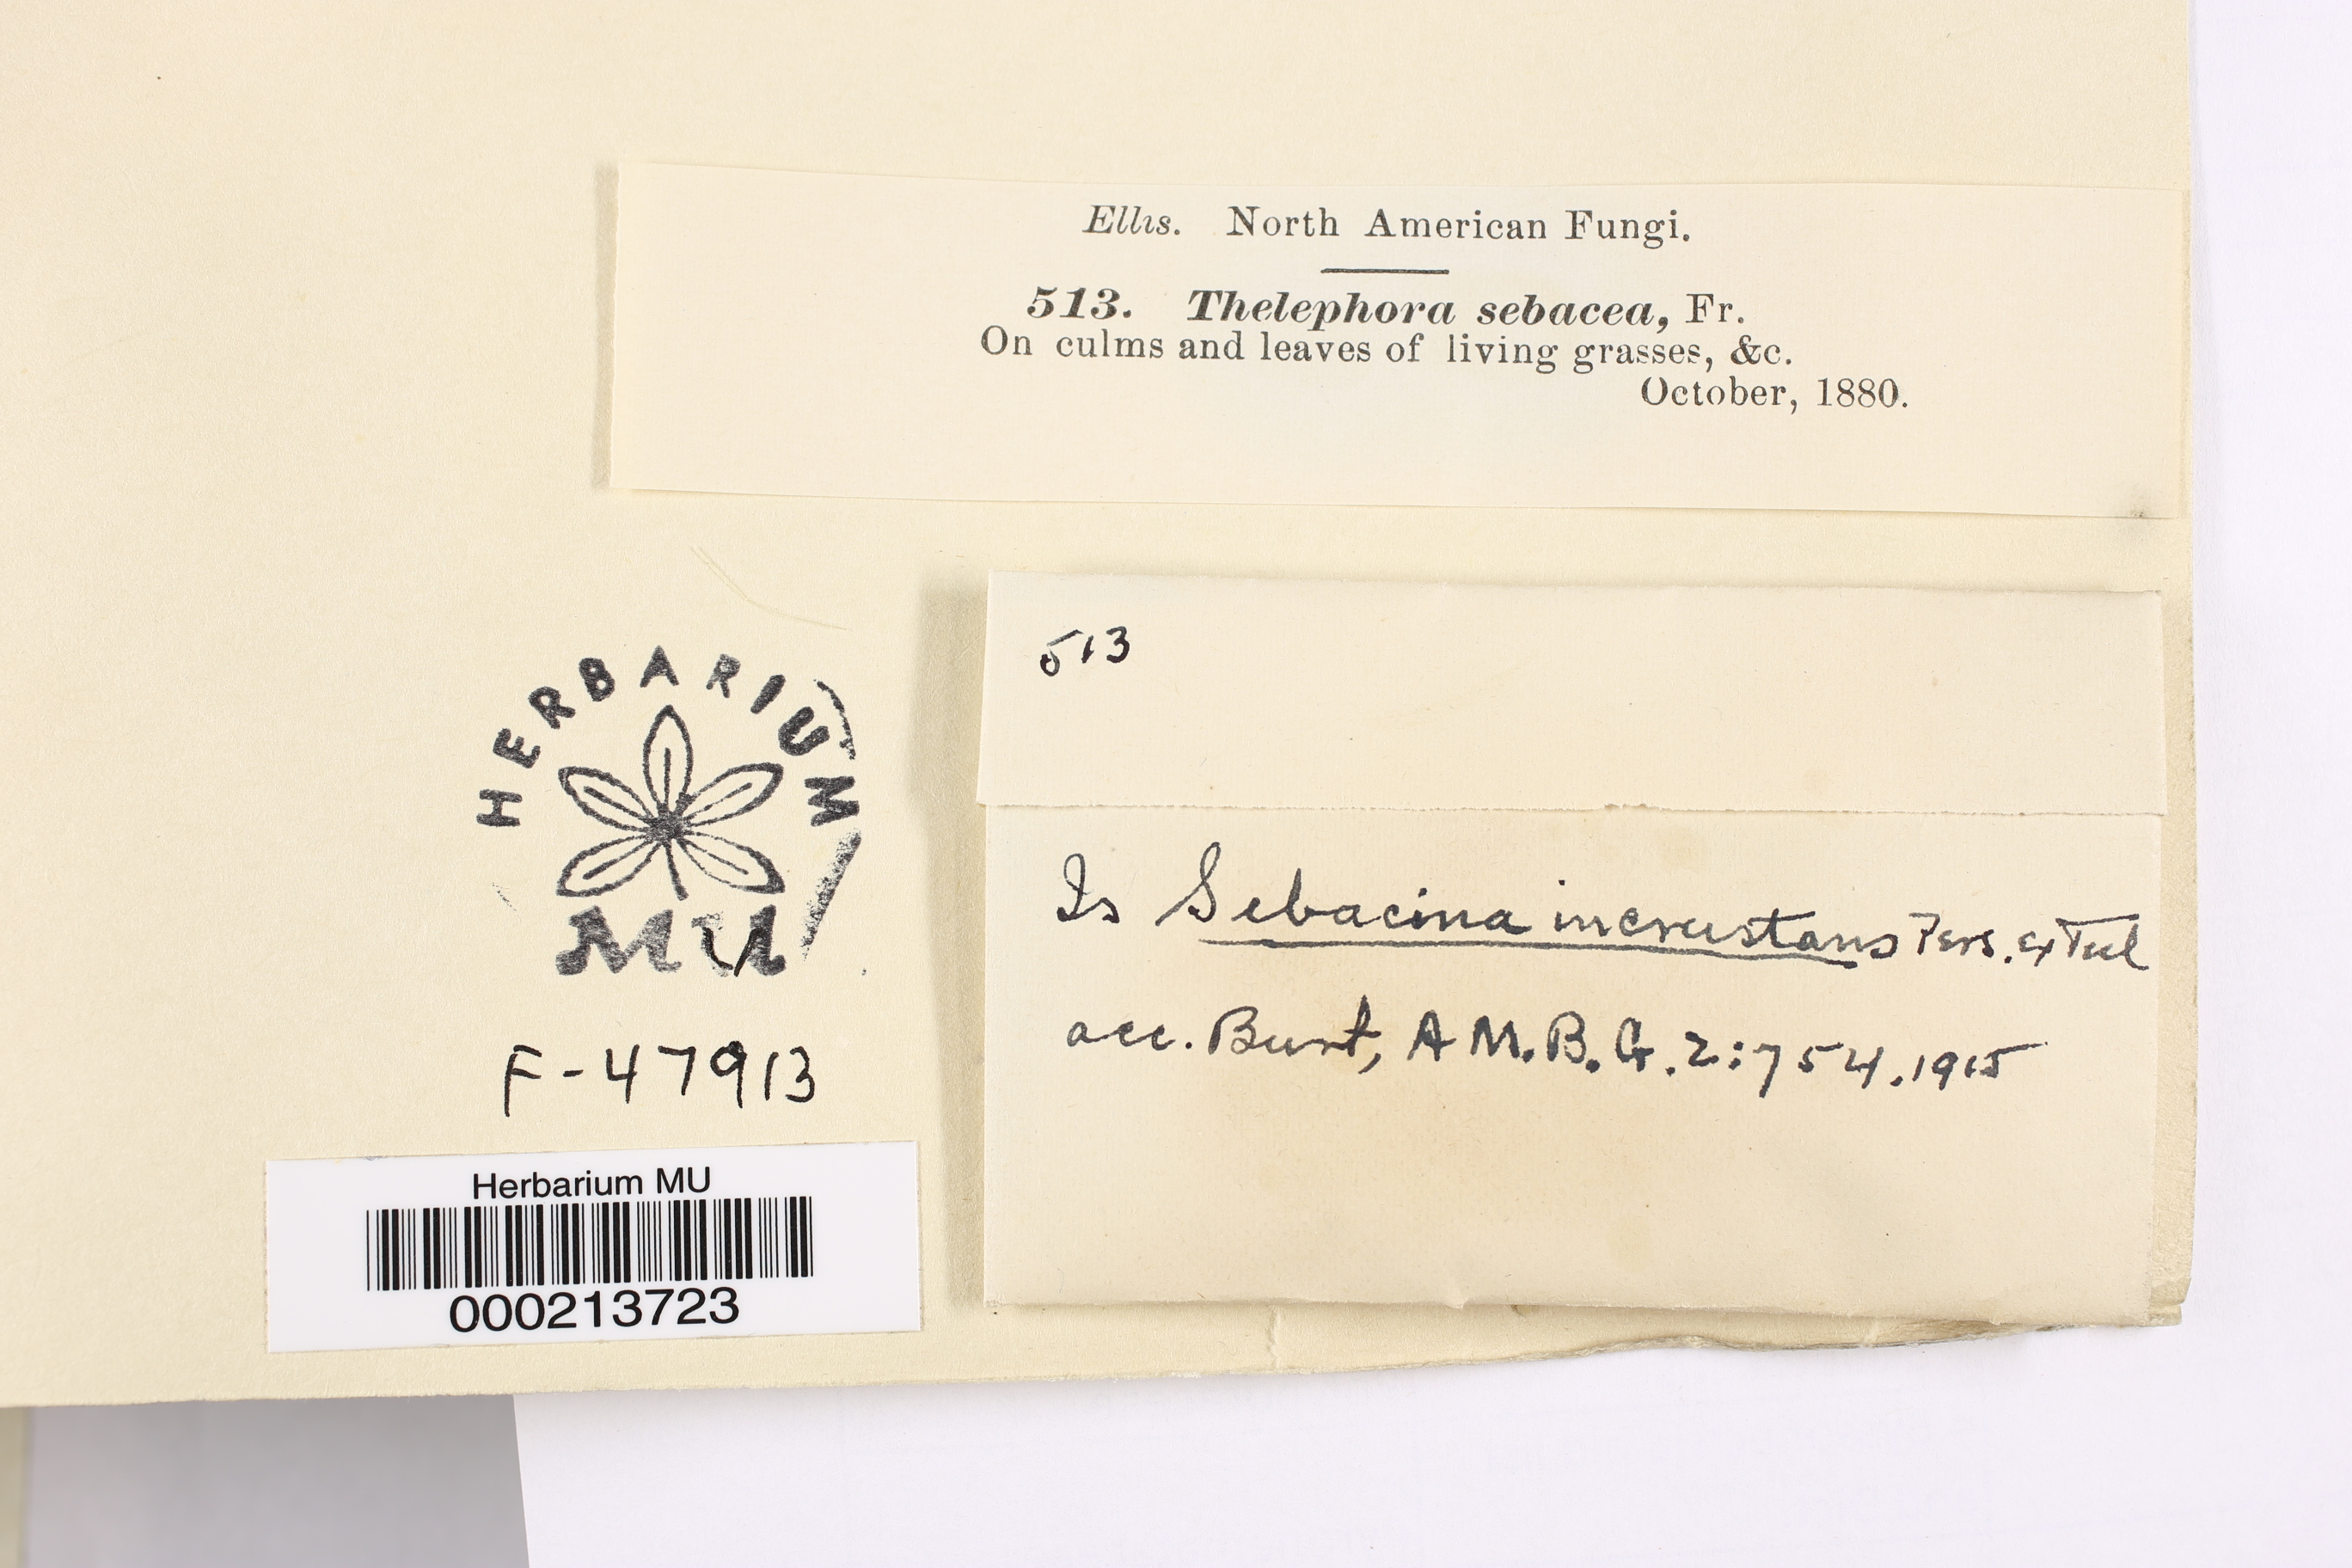 Ellis. North American Fungi.
513. Thelephora sebacea, Fr.
On culms and leaves of living grasses, &c.
October, 1880.
513
Is Sebacina incrustans Pers. ex Tul
acc. Burt, A M.B.G. 2:754.1915
HERBARIUM
MU
F-47913
Herbarium MU
000213723